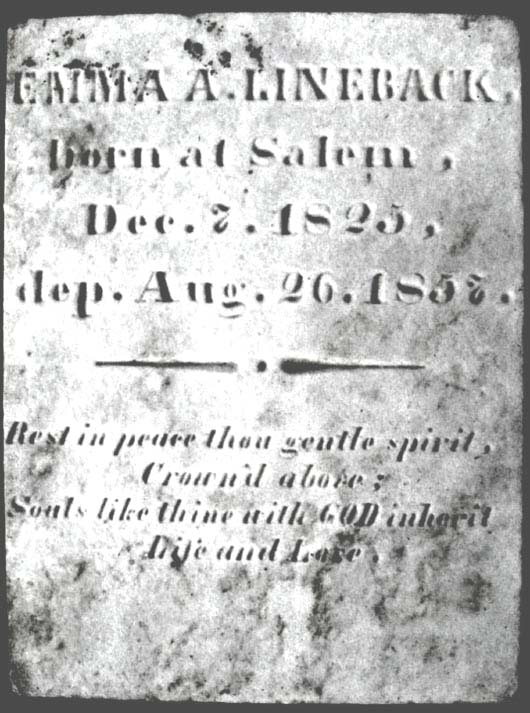 EMMA A. LINEBACK,
born at Salem,
Dec. 7. 1825,
dep. Aug. 26. 1857.
Rest in peace thou gentle spirit,
Crown'd above;
Souls like thine with GOD inherit
Life and Love.